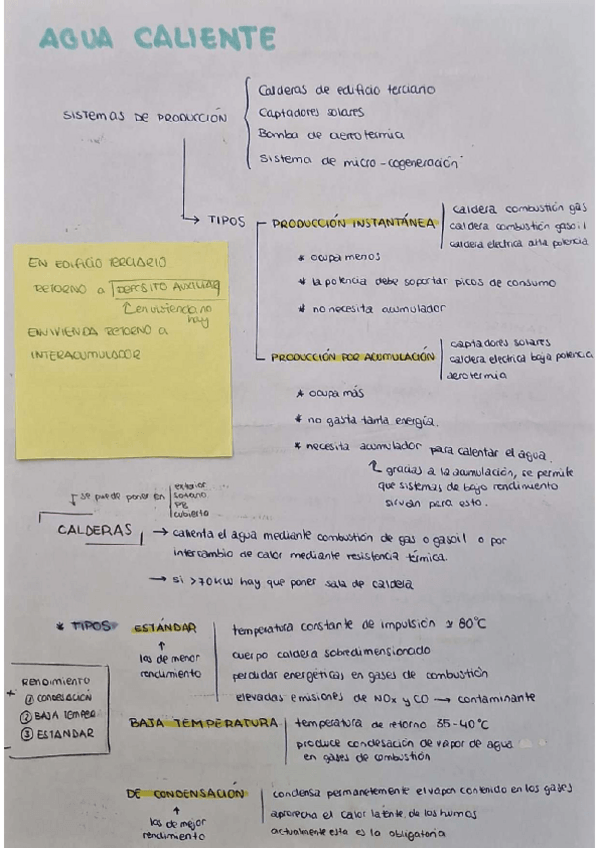 AGUA CALIENTE
SISTEMAS DE PRODUCCIÓN
Calderas de edificio terciario
Captadores solares
Bomba de aerotermia
Sistema de micro-cogeneración
TIPOS
PRODUCCIÓN INSTANTÁNEA
caldera combustión gas
caldera combustión gasoil
caldera electrica alta potencia
* ocupa menos
* la potencia debe soportar picos de consumo
* no necesita acumulador
EN EDIFICIO TERCIARIO
RETORNO a DEPÓSITO AUXILIAR
en vivienda no
hay
EN VIVIENDA RETORNO a
INTERACUMULADOR
PRODUCCIÓN POR ACUMULACIÓN
captadores solares
caldera electrica baja potencia
aerotermia
* ocupa más
* no gasta tanta energía.
* necesita acumulador para calentar el agua.
gracias a la acumulación, se permite
que sistemas de bajo rendimiento
sirvan para esto.
se puede poner en
exterior
sotano
PB
cubierta
CALDERAS
→ calienta el agua mediante combustión de gas o gasoil o por
intercambio de calor mediante resistencia térmica.
→ si >70KW hay que poner sala de caldera
* TIPOS
ESTÁNDAR
↑
las de menor
rendimiento
temperatura constante de impulsión ≈ 80°C
cuerpo caldera sobredimensionado
perdidas energéticas en gases de combustión
elevadas emisiones de NOx y CO → contaminante
+
RENDIMIENTO
① CONDESACIÓN
② BAJA TEMPER
③ ESTANDAR
BAJA TEMPERATURA
temperatura de retorno 35-40°C
produce condesación de vapor de agua
en gases de combustión
DE CONDENSACIÓN
↑
las de mejor
rendimiento
condensa permanetemente el vapor contenido en los gases
aprovecha el calor latente de los humos
actualmente esta es la obligatoria